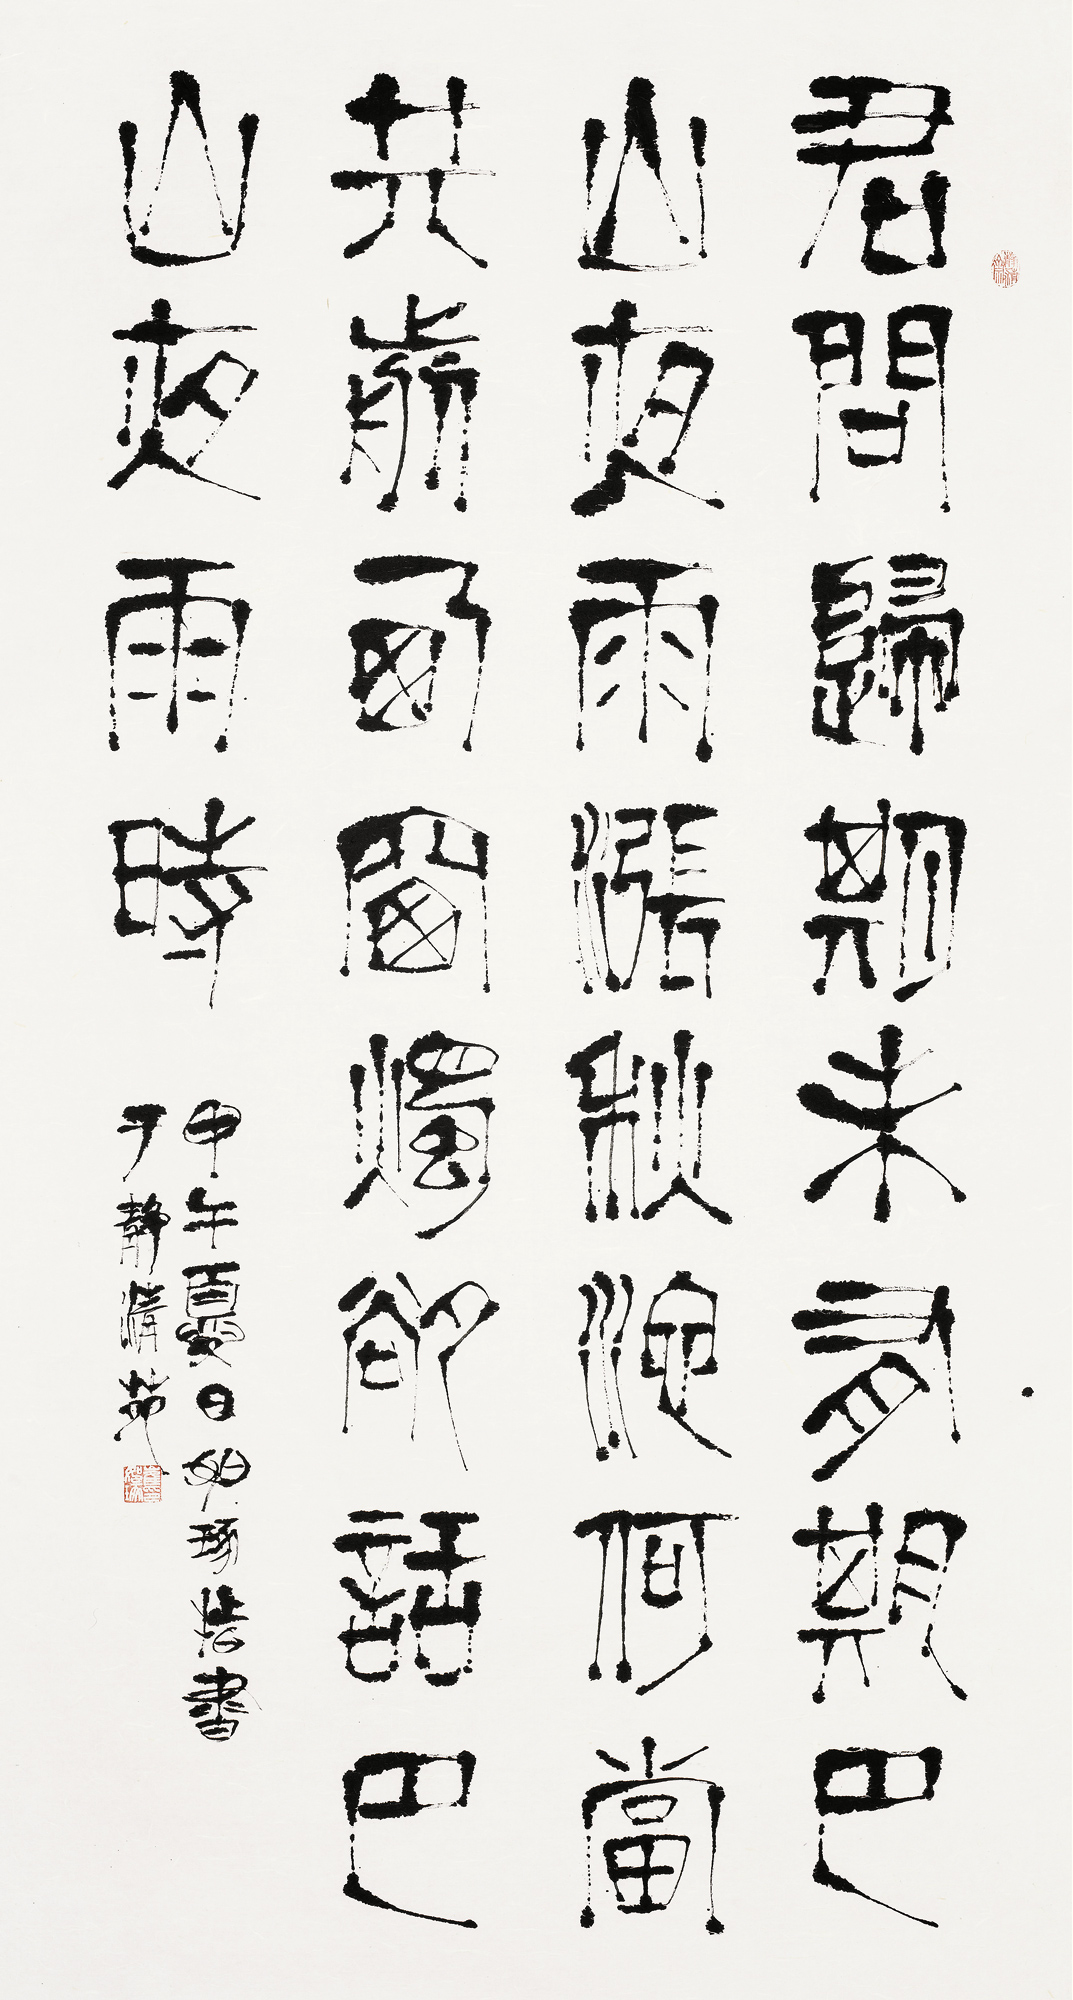 君問歸期未有期巴
山夜雨漲秋池何當
共剪西窗燭卻話巴
山夜雨時
甲午夏日琢書
于靜清苑